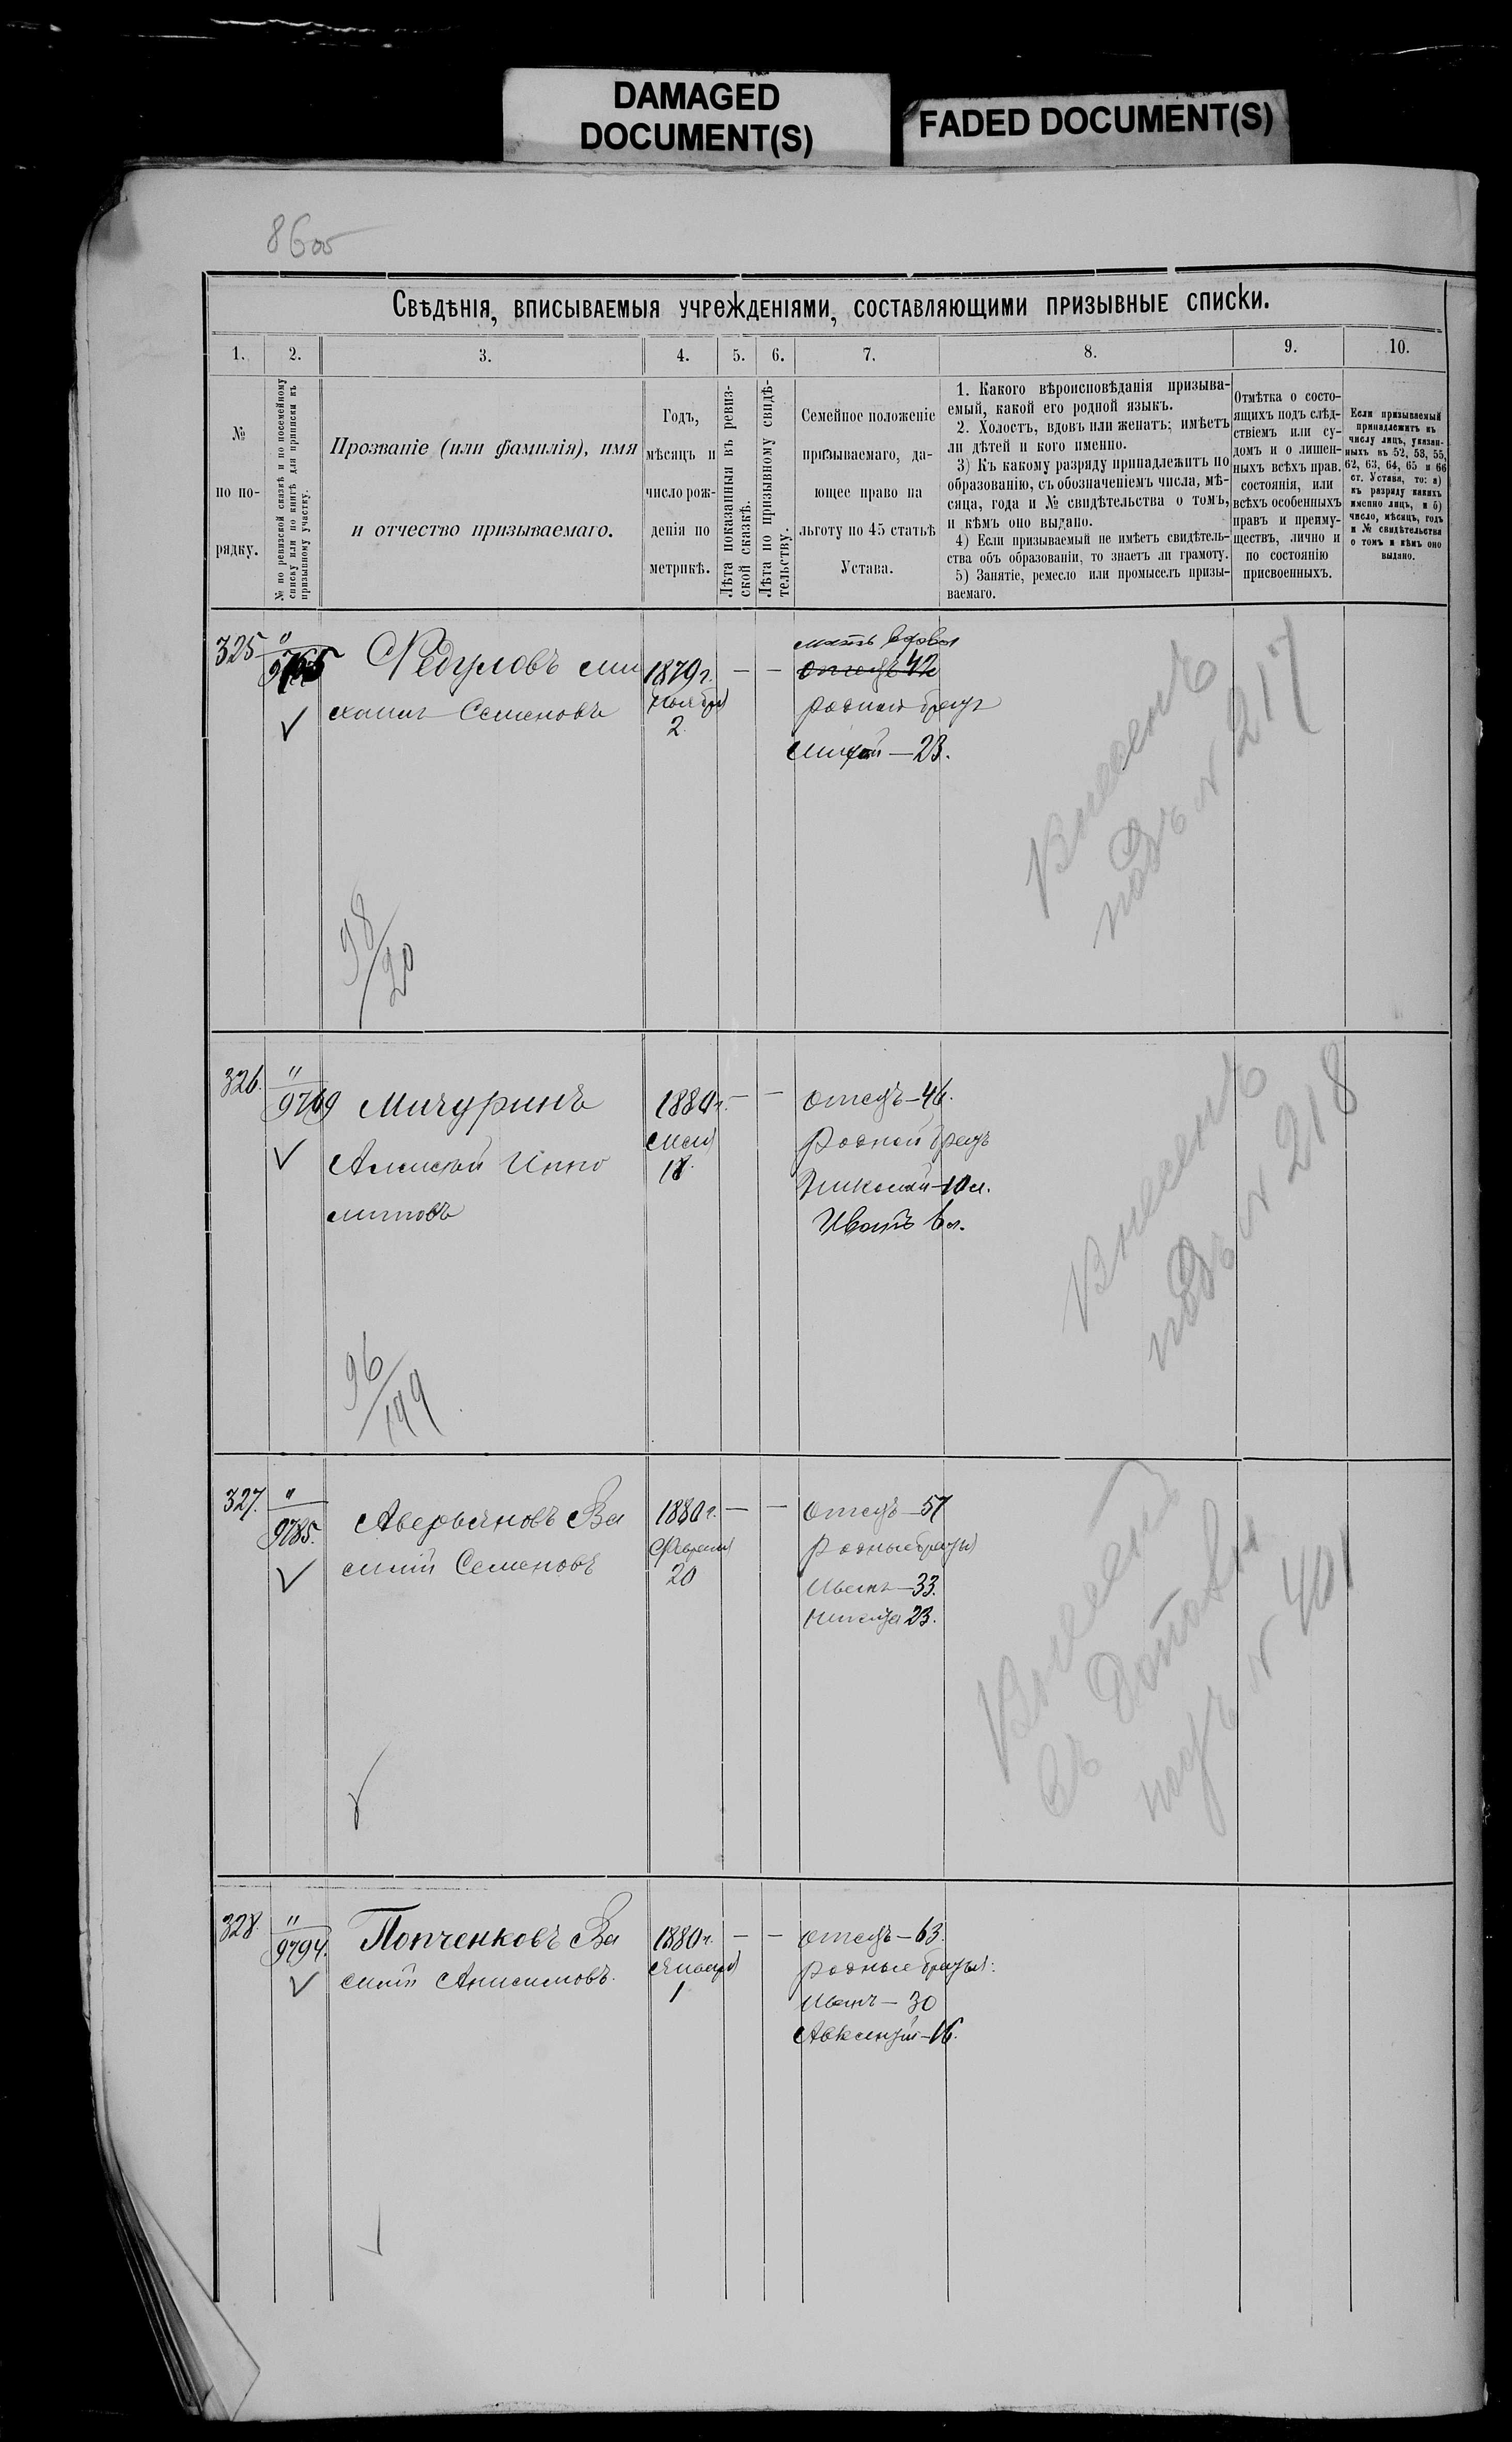 DAMAGED
DOCUMENT(S)
FADED DOCUMENT(S)
Свѣдѣнія, вписываемыя учрежденіями, составляющими призывные списки.
1. 2. 3. 4. 5. 6. 7. 8. 9. 10.
№
по по-
рядку.
№ по ревизской сказкѣ и по посемейному
списку или по книгѣ для приписки къ
призывному участку.
Прозваніе (или фамилія), имя
и отчество призываемаго.
Годъ,
мѣсяцъ и
число рож-
денія по
метрикѣ.
Лѣта показанныя въ ревиз-
ской сказкѣ.
Лѣта по призывному свидѣ-
тельству.
Семейное положеніе
призываемаго, да-
ющее право на
льготу по 45 статьѣ
Устава.
1. Какого вѣроисповѣданія призыва-
емый, какой его родной языкъ.
2. Холостъ, вдовъ или женатъ; имѣетъ
ли дѣтей и кого именно.
3) Къ какому разряду принадлежитъ по
образованію, съ обозначеніемъ числа, мѣ-
сяца, года и № свидѣтельства о томъ,
и кѣмъ оно выдано.
4) Если призываемый не имѣетъ свидѣтель-
ства объ образованіи, то знаетъ ли грамоту.
5) Занятіе, ремесло или промыселъ призы-
ваемаго.
Отмѣтка о состо-
ящихъ подъ слѣд-
ствіемъ или су-
домъ и о лишен-
ныхъ всѣхъ прав.
состоянія, или
всѣхъ особенныхъ
правъ и преиму-
ществъ, лично и
по состоянію
присвоенныхъ.
Если призываемый
принадлежитъ къ
числу лицъ, указан-
ныхъ въ 52, 53, 55,
62, 63, 64, 65 и 66
ст. Устава, то: а)
къ разряду какихъ
именно лицъ, и б)
число, мѣсяцъ, годъ
и № свидѣтельства
о томъ и кѣмъ оно
выдано.
325 " Федуловъ Ми 1879 г. — — мать вдова
9765 хаилъ Семеновъ Ноября отецъ 42
2 родной братъ
— 23.
Внесенъ
подъ № 217
98/20
326. " Мичуринъ 1880 г. — — отецъ — 46.
9769 Алексѣй Иппо Мая родной братъ
литовъ 18. Николай — 10 л.
Иванъ 6 л.
Внесенъ
подъ № 218
96/199
327. " Аверьяновъ Ва 1880 г. — — отецъ — 57
9785. силій Семеновъ Февраля родные братья
20 Иванъ — 33.
Никита 23.
Внесенъ
въ
подъ № 401
328. " Попченковъ Ва 1880 г. — — отецъ — 63.
9794. силій Анисимовъ. Января родные братья:
1 Иванъ — 30
Авксентій — 16.